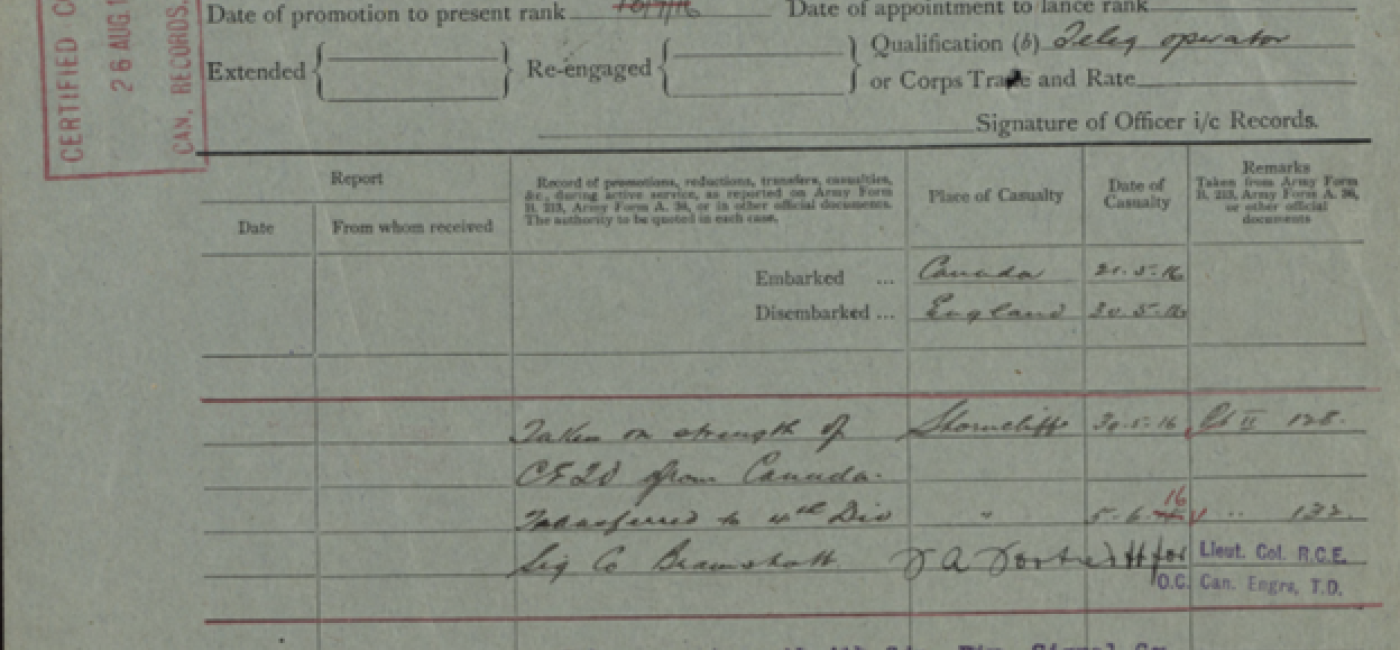 CERTIFIED C
26 AUG 1
CAN. RECORDS.
Date of promotion to present rank
Date of appointment to lance rank
Extended
Re-engaged
Qualification (b) Teleg operator
or Corps Trade and Rate
Signature of Officer i/c Records.
Report
Date
From whom received
Record of promotions, reductions, transfers, casualties,
&c., during active service, as reported on Army Form
B. 213, Army Form A. 36, or in other official documents.
The authority to be quoted in each case.
Place of Casualty
Date of
Casualty
Remarks
Taken from Army Form
B. 213, Army Form A. 36,
or other official
documents
Embarked ... Canada 21.5.16
Disembarked ... England 30.5.16
Taken on strength of Shorncliffe 30.5.16 Pt II 128.
from Canada.
Transferred to 4th Div " 5.6.16 " 132.
Sig Co Bramshott for Lieut. Col. R.C.E.
O.C. Can. Engrs, T.D.